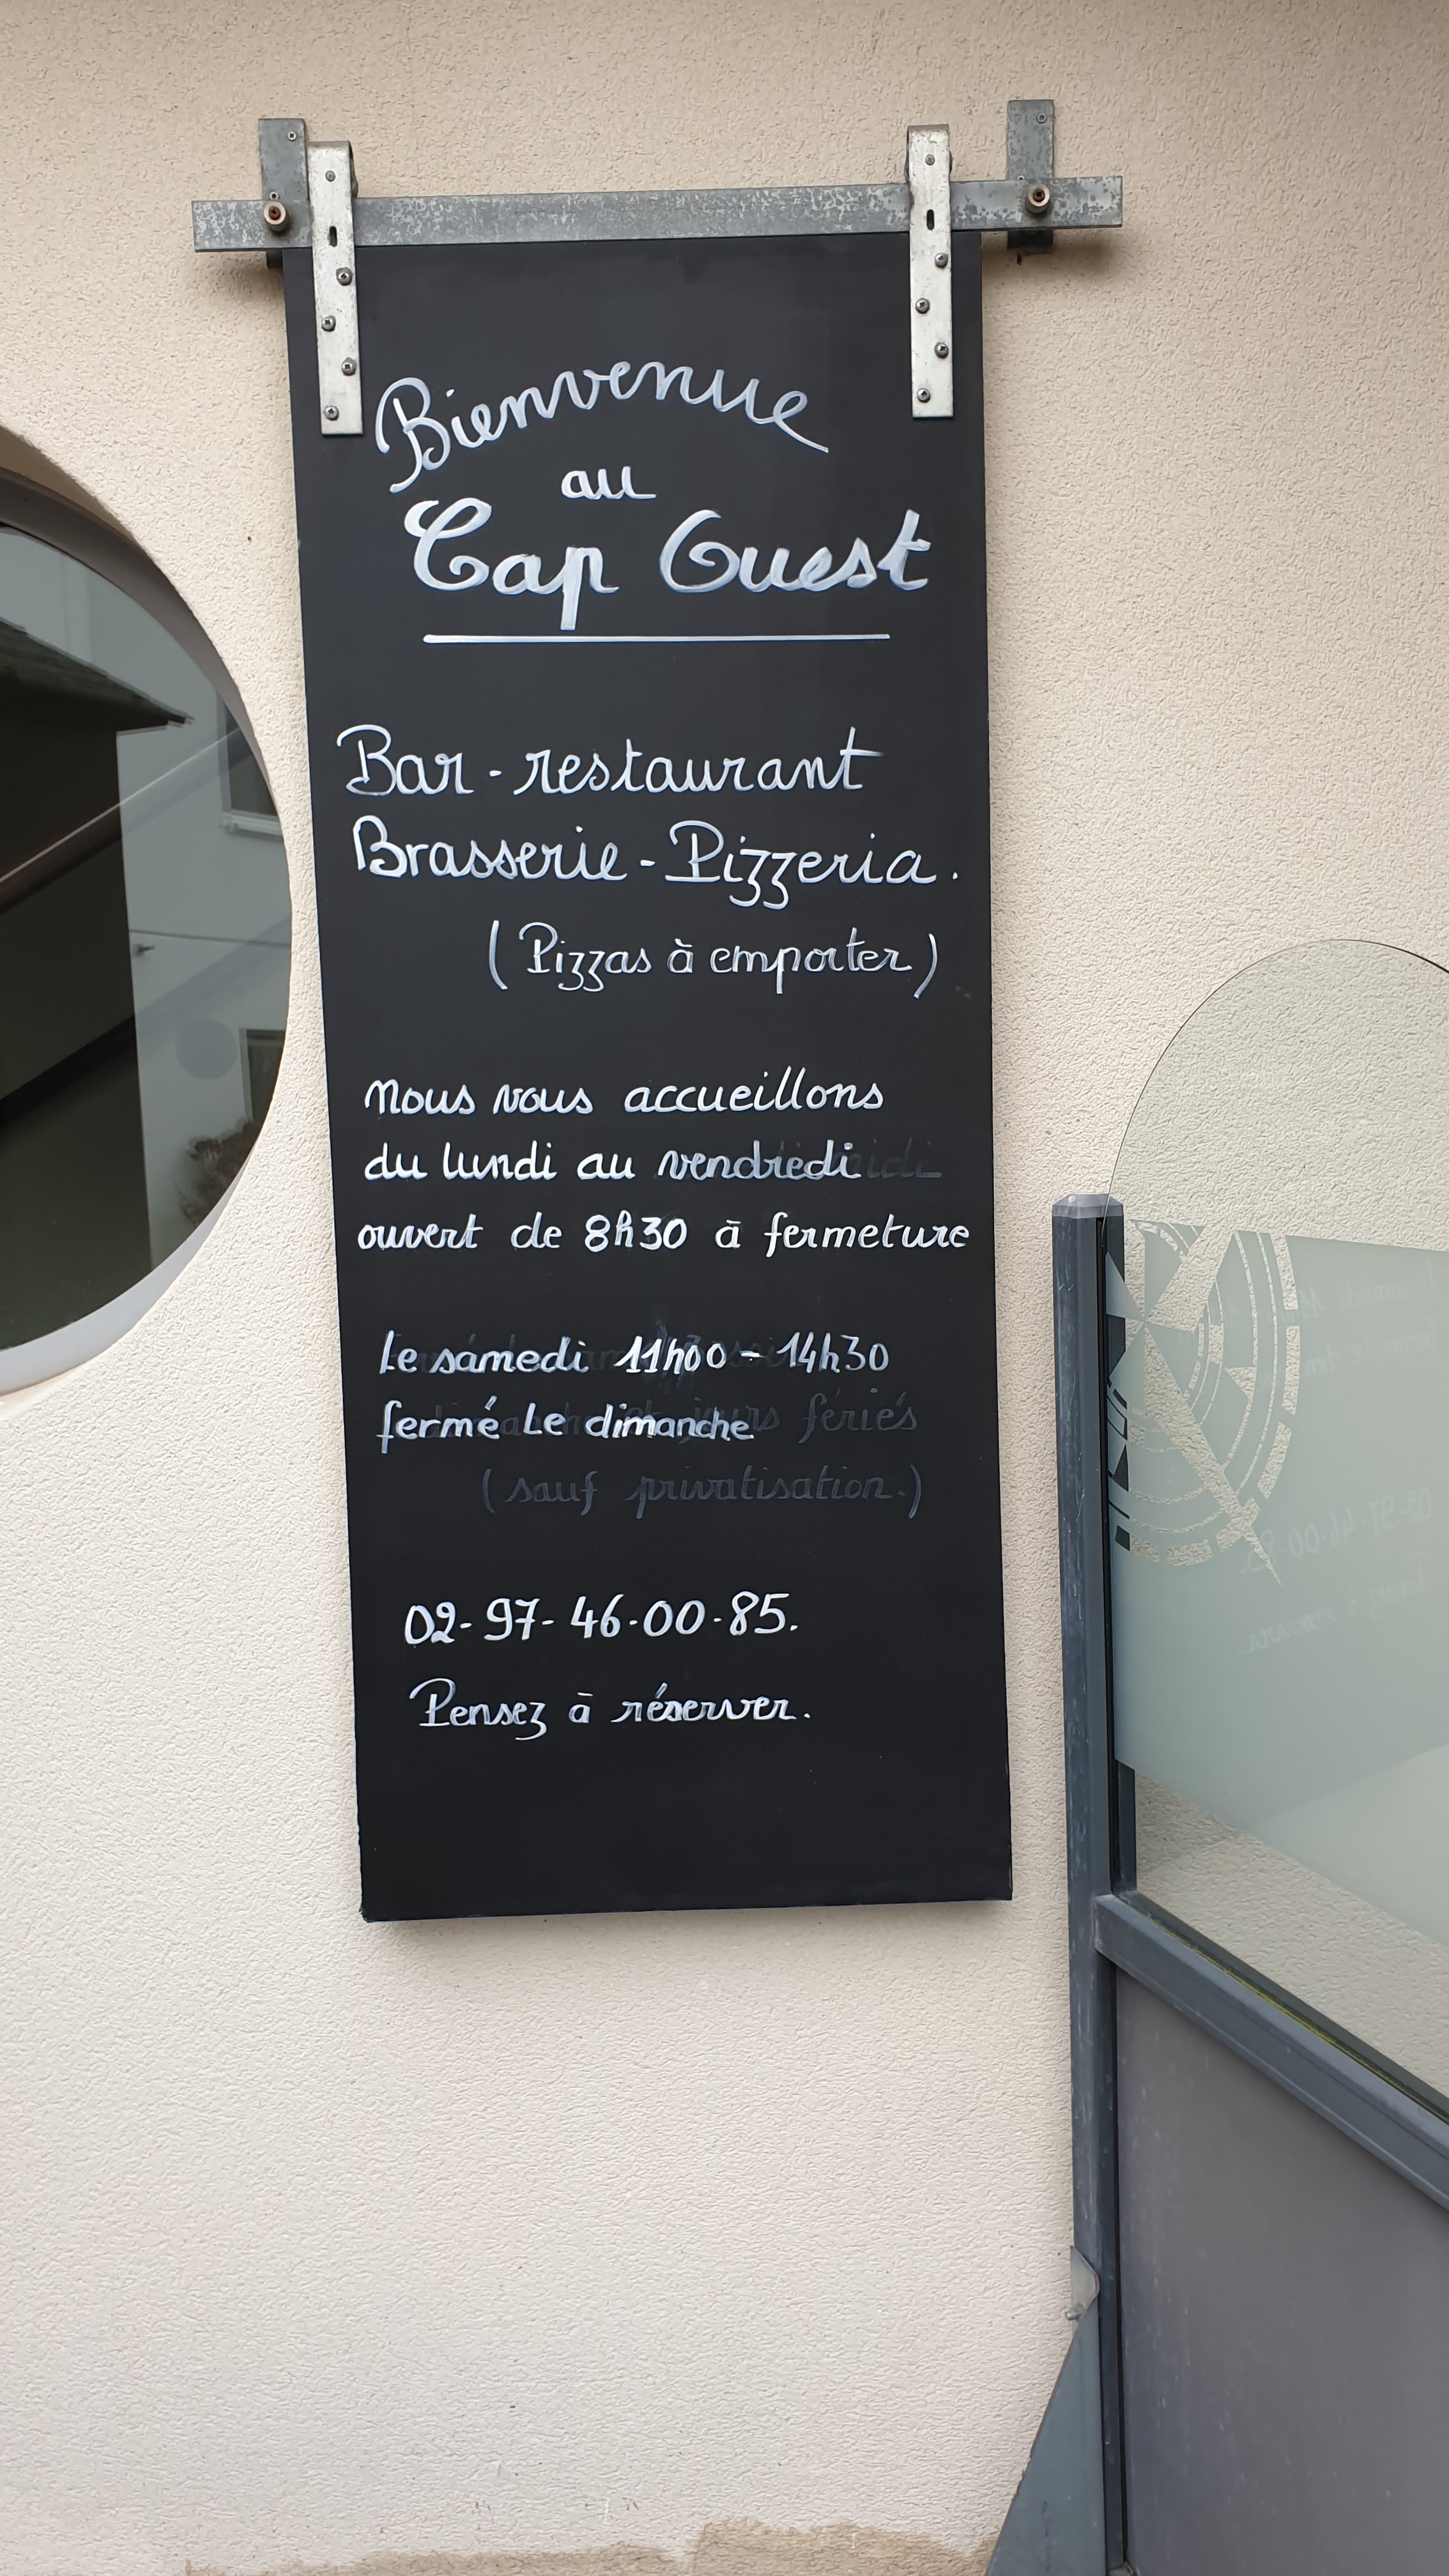 Bienvenue
au
Cap Ouest
Bar - restaurant
Brasserie - Pizzeria.
(Pizzas à emporter)
Nous vous accueillons
du lundi au vendredi
ouvert de 8h30 à fermeture
Le samedi 11h00 - 14h30
fermé Le dimanche
jours fériés
(sauf privatisation.)
02-97-46-00-85.
Pensez à réserver.